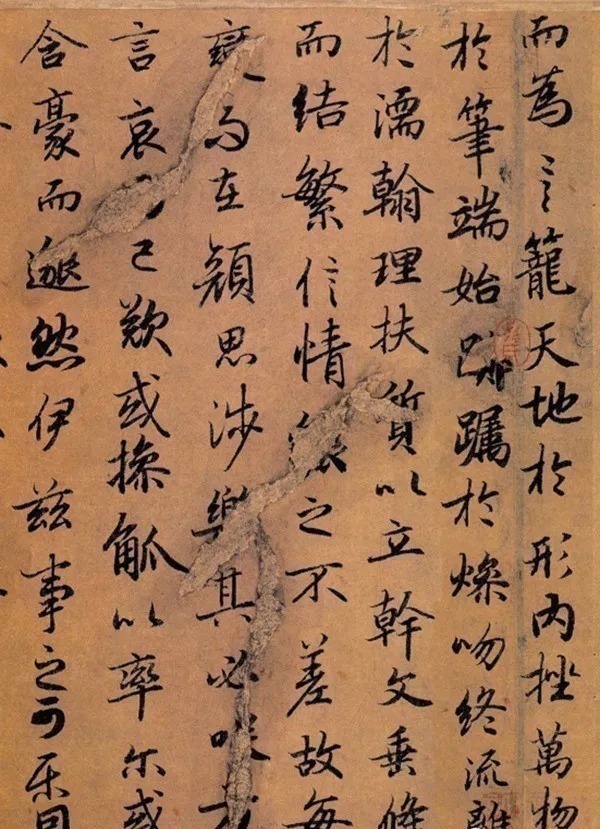 而為言籠天地於形内挫萬物
於筆端始躅於燥吻終流離
於濡翰理扶質以立幹文垂條
而結繁信情之不差故每
變而在顏思涉樂其必咲方
言哀已歎或操觚以率尔或
含豪而邈然伊茲事之可樂固